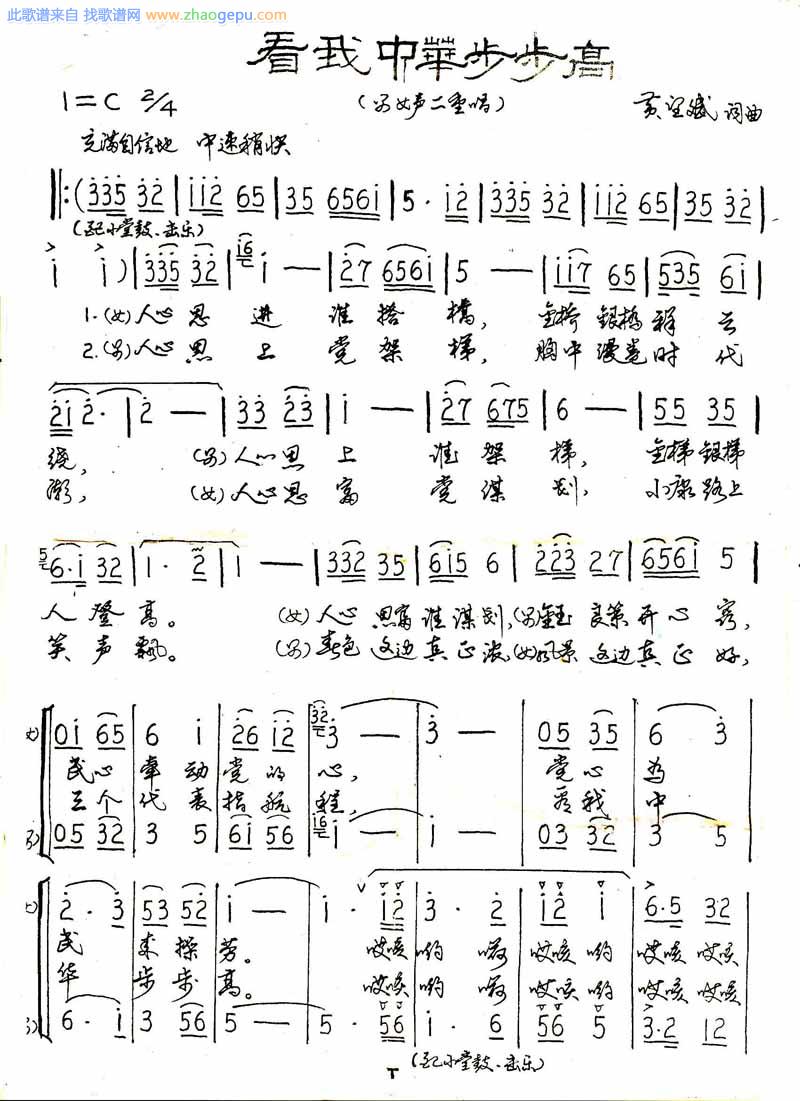 此歌谱来自 找歌谱网 www.zhaogepu.com
看我中华步步高
1=C 2/4 (男女声二重唱) 词曲
充满自信地 中速稍快
‖:(335 32 | 112 65 | 35 6561 | 5· 12 | 335 32 | 112 65 | 35 32 |
(配小堂鼓、击乐)
1 1) | 335 32 | 1 — | 27 6561 | 5 — | 117 65 | 535 61 |
1.(女)人心思进谁搭桥, 金桥银桥祥云
2.(男)人心思上党架梯, 胸中漫卷时代
21 2· | 2 — | 33 23 | 1 — | 27 675 | 6 — | 55 35 |
绕, (男)人心思上谁架梯, 金梯银梯
潮, (女)人心思富党谋划, 小康路上
6·1 32 | 1· 2 | 1 — | 332 35 | 615 6 | 223 27 | 6561 5 |
人登高。 (女)人心思富谁谋划,(男)金玉良策开心窍,
笑声飘。 (男)春色这边真正浓,(女)风景这边真正好,
女) 01 65 | 6 1 | 26 12 | 3 — | 3 — | 05 35 | 6 3 |
民心牵动党的心, 党心为
三个代表指航程, 看我中
男) 05 32 | 3 5 | 61 56 | 1 — | 1 — | 03 32 | 3 5 |
女) 2· 3 | 53 52 | 1 — | 1· 12 | 3· 2 | 12 1 | 6·5 32 |
民来操劳。 哎咳哟嗬哎咳哟哎咳哎咳
华步步高。 哎咳哟嗬哎咳哟哎咳哎咳
男) 6· 1 | 3 56 | 5 — | 5· 56 | 1· 6 | 56 5 | 3·2 12 |
(配小堂鼓、击乐)